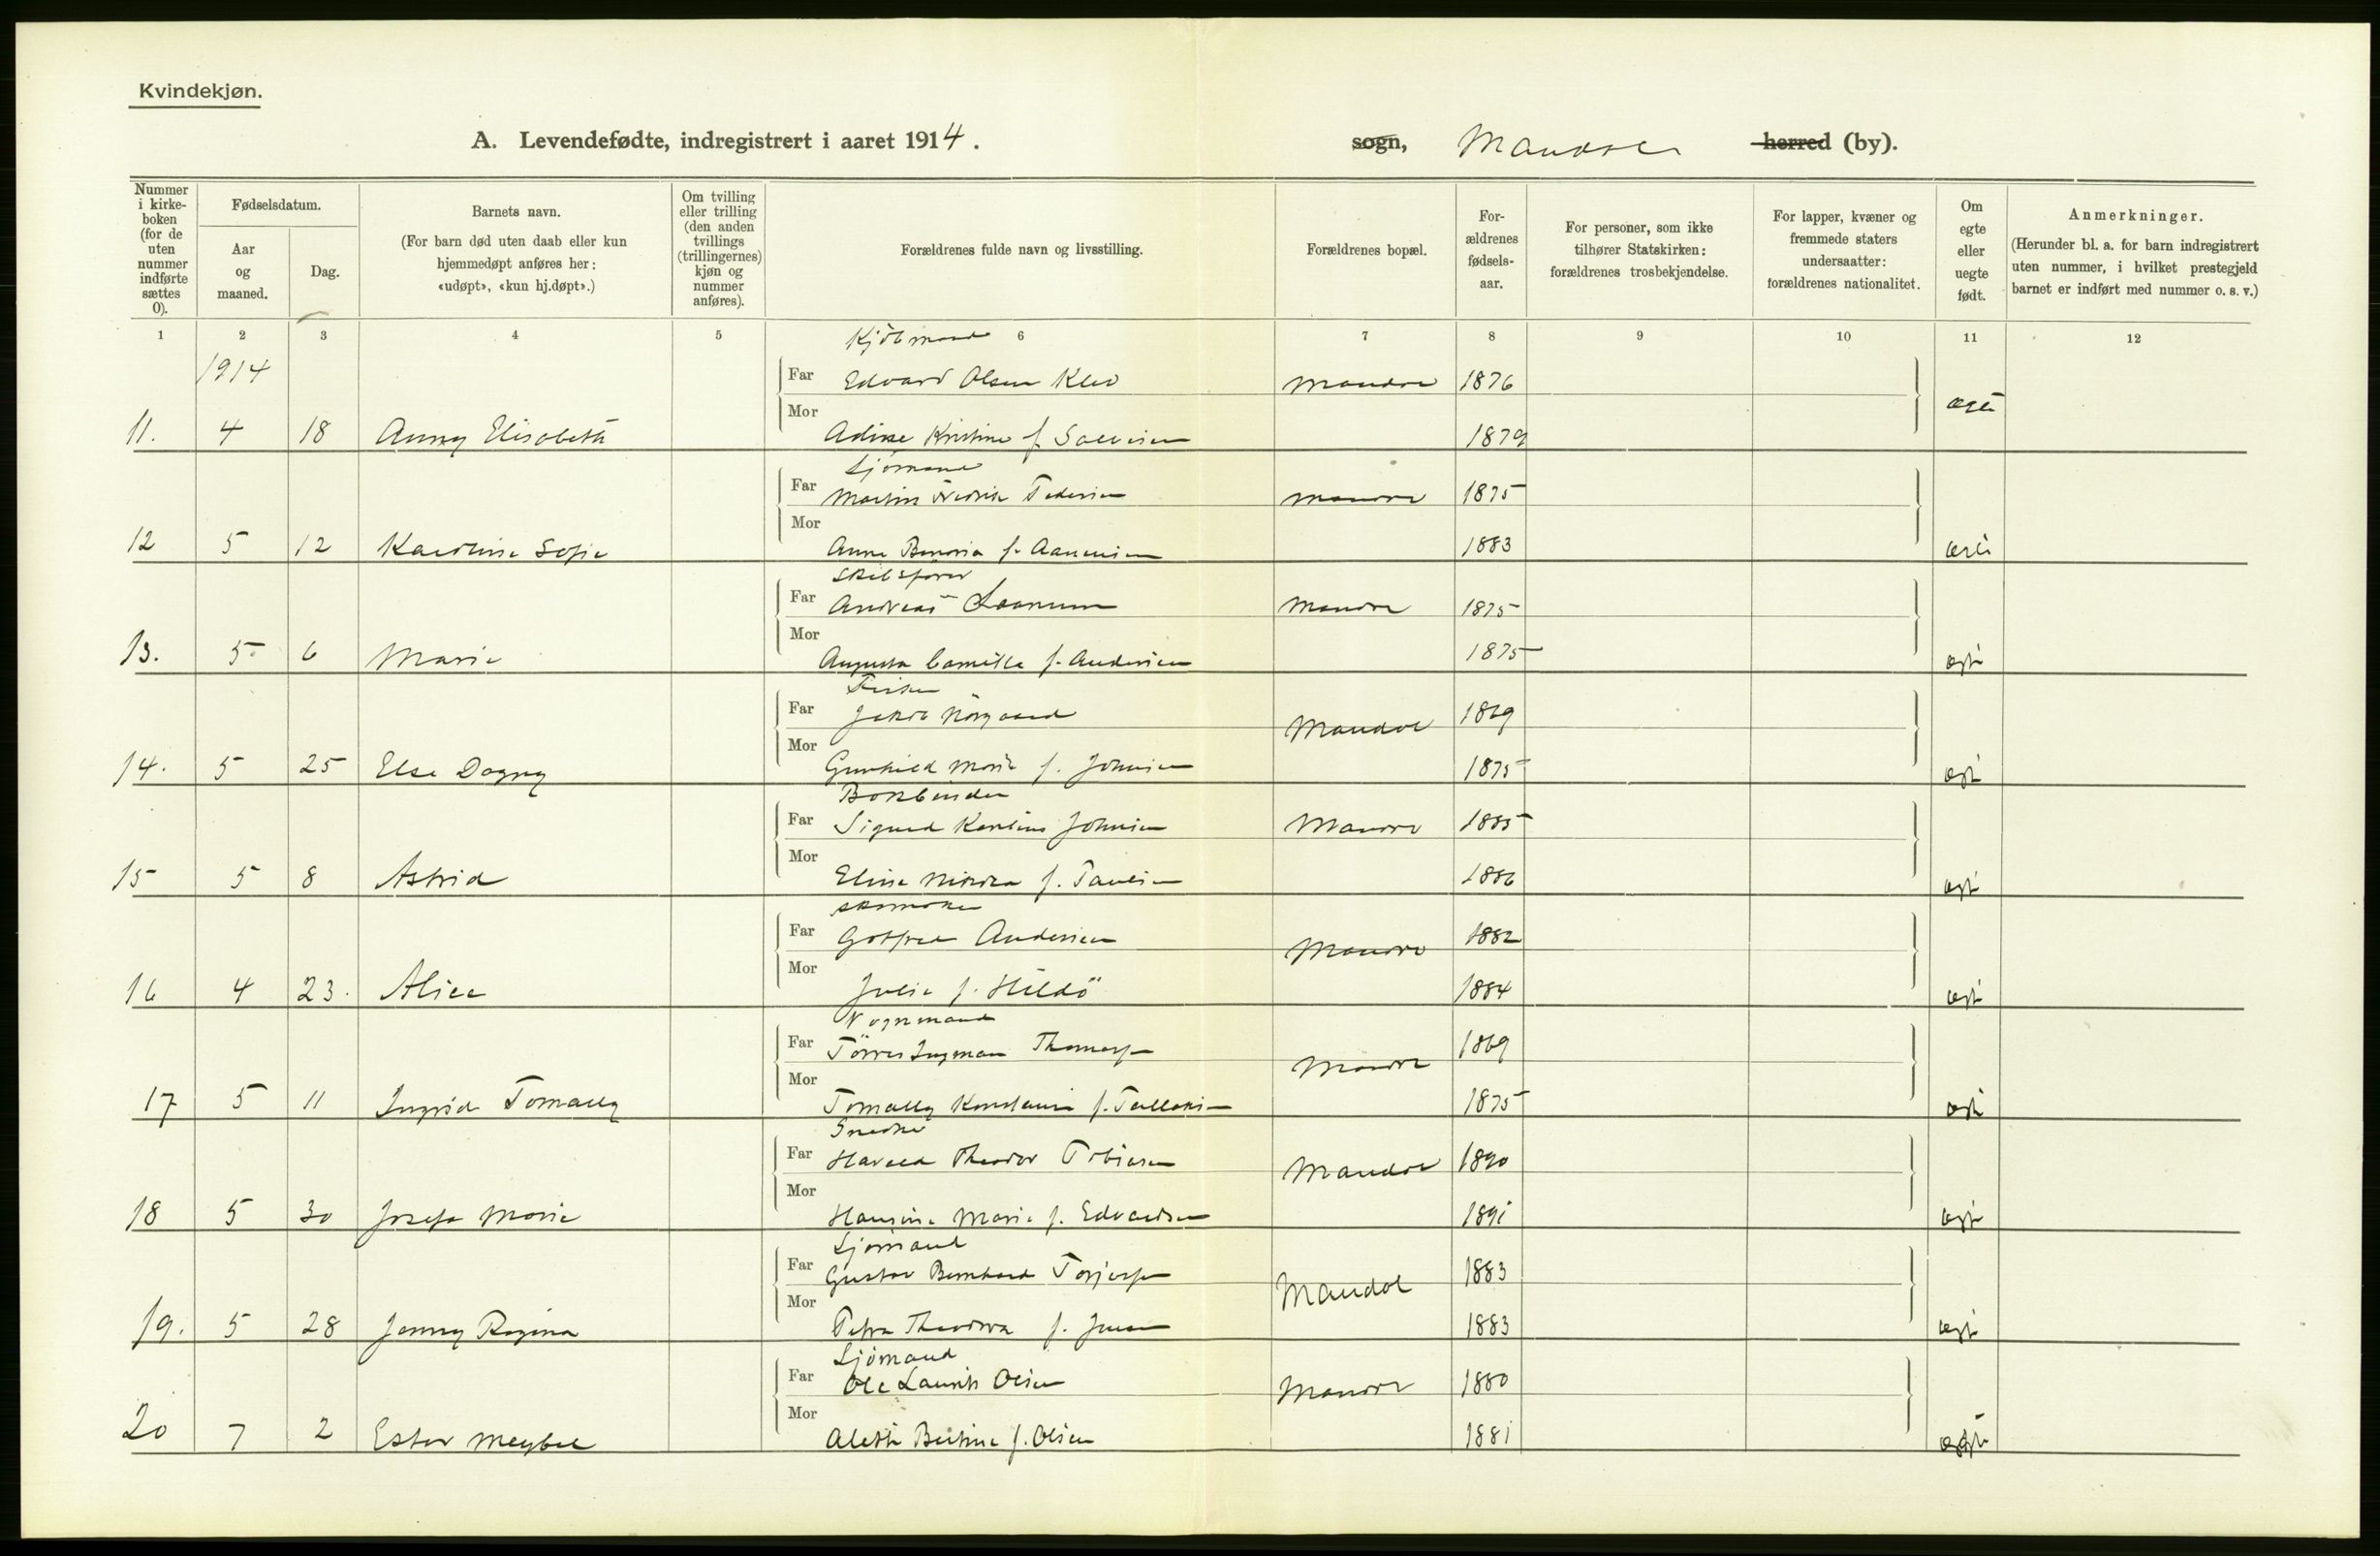 Kvindekjøn.
A. Levendefødte, indregistrert i aaret 1914.
sogn, Mandal herred (by).
Nummer i kirkeboken (for de uten nummer indførte sættes 0).
Fødselsdatum.
Aar og maaned.
Dag.
Barnets navn.
(For barn død uten daab eller kun hjemmedøpt anføres her: «udøpt», «kun hj.døpt».)
Om tvilling eller trilling (den anden tvillings (trillingernes) kjøn og nummer anføres).
Forældrenes fulde navn og livsstilling.
Forældrenes bopæl.
Forældrenes fødselsaar.
For personer, som ikke tilhører Statskirken: forældrenes trosbekjendelse.
For lapper, kvæner og fremmede staters undersaatter: forældrenes nationalitet.
Om egte eller uegte født.
Anmerkninger.
(Herunder bl. a. for barn indregistrert uten nummer, i hvilket prestegjeld barnet er indført med nummer o. s. v.)
1 2 3 4 5 6 7 8 9 10 11 12
1914
Kjøbmand
Far Edvard Olsen Klev Mandal 1876
Mor
11. 4 18 Anny Elisabeth Adine Kristine f. Salvesen 1879 ægte
Sjömand
Far Martin Fredrik Pedersen Mandal 1875
Mor
12 5 12 Karoline Sofie Anna f. Aanensen 1883 ægte
Skibsfører
Far Andreas Laanum Mandal 1875
Mor
13. 5 6 Marie Augusta Camilla f. Andersen 1875 ægte
Fisker
Far Jakob Nörgaard Mandal 1869
Mor
14. 5 25 Else Dagny Gunhild Marie f. Johnsen 1875 ægte
Bokbinder
Far Sigurd Karelius Johnsen Mandal 1885
Mor
15 5 8 Astrid Elise Nikolea f. Paulsen 1886 ægte
Skomaker
Far Gotfred Andersen Mandal 1882
Mor
16 4 23. Alice Julie f. Hildö 1884 ægte
Vognmand
Far Törres Ingman Thomassen Mandal 1869
Mor
17 5 11 Ingrid Tomally Tomally Konstanse f. Tallaksen 1875 ægte
Snedker
Far Harald Theodor Tobiasen Mandal 1890
Mor
18 5 30 Josefa Marie Hansine Marie f. Edvardsen 1891 ægte
Sjömand
Far Gustav Bernhard Torjussen Mandal 1883
Mor
19. 5 28 Jenny Regina Petra Theodora f. Jensen 1883 ægte
Sjömand
Far Ole Laurits Olsen Mandal 1880
Mor
20 7 2 Ester Meybel Alette Bertine f. Olsen 1881 ægte